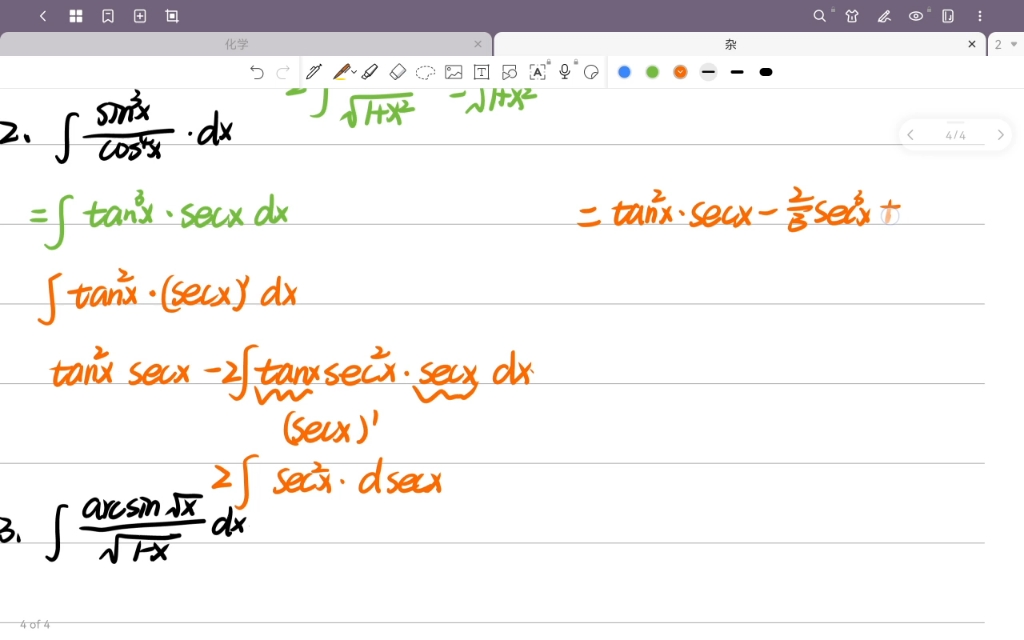 化学
杂
2
= ∫ √1+x² - √1+x²
2. ∫ sin³x/cos⁴x · dx
4/4
= ∫ tan³x · secx dx
= tan²x · secx - 2/3 sec³x +
∫ tan²x · (secx)' dx
tan²x secx - 2∫ tanx sec²x · secx dx
(secx)'
2∫ sec²x · d secx
3. ∫ arcsin √x / √1-x dx
4 of 4